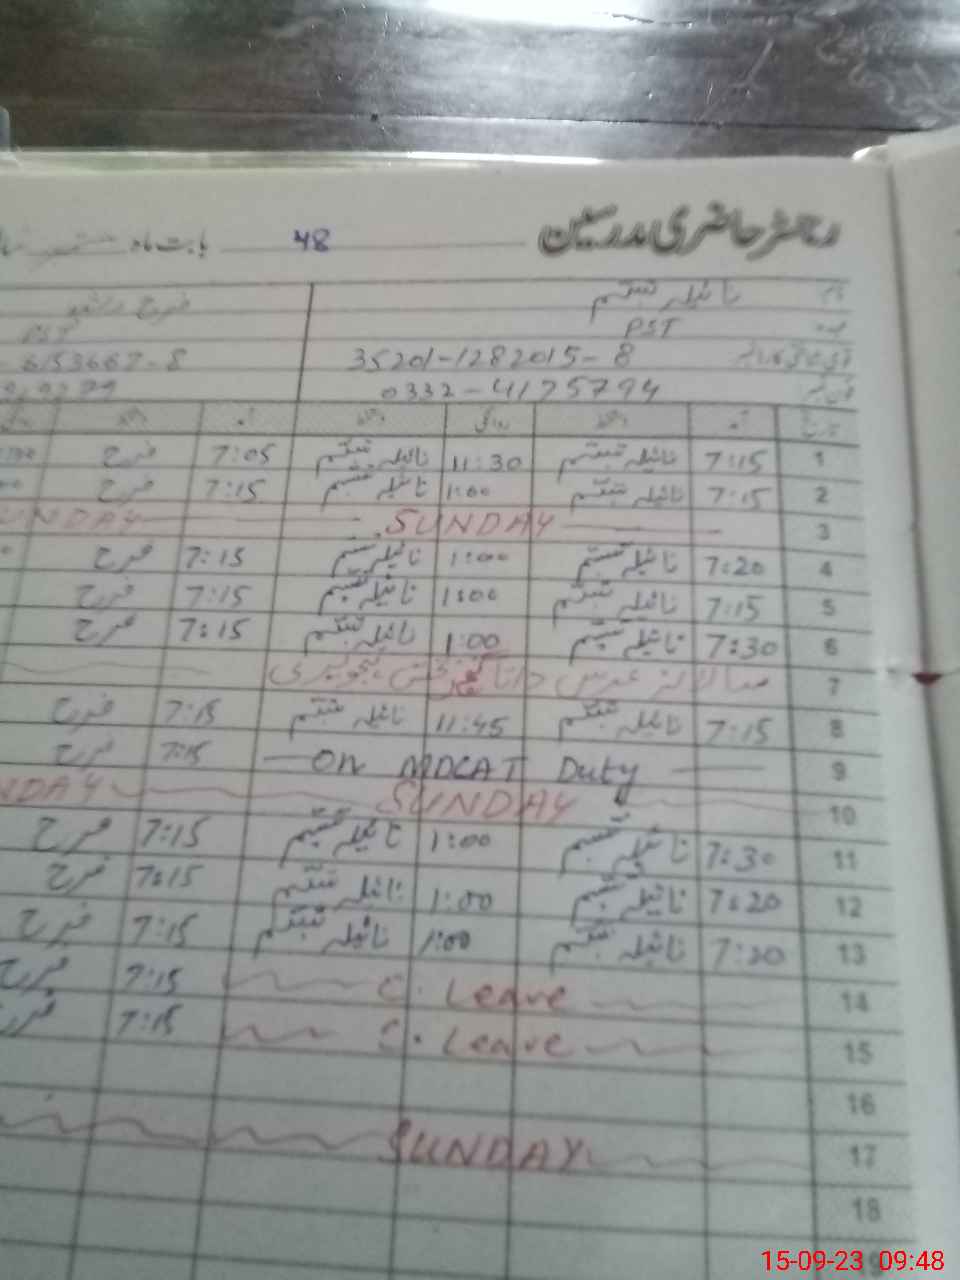 رجسٹر حاضری مدرسین 48 بابت ماہ ستمبر
نام نائیلہ تبسم
عہدہ PST
35201-1282015-8 6153667-8
فون نمبر 0332-4175794
تاریخ آمد دستخط روانگی دستخط آمد دستخط
1 7:15 نائیلہ تبسم 11:30 نائیلہ تبسم 7:05 فرح
2 7:15 نائیلہ تبسم 1:00 نائیلہ تبسم 7:15 فرح
3 SUNDAY
4 7:20 نائیلہ تبسم 1:00 نائیلہ تبسم 7:15 فرح
5 7:15 نائیلہ تبسم 1:00 نائیلہ تبسم 7:15 فرح
6 7:30 نائیلہ تبسم 1:00 نائیلہ تبسم 7:15 فرح
7 سالانہ عرس داتا گنج بخش ہجویری
8 7:15 نائیلہ تبسم 11:45 نائیلہ تبسم 7:15 فرح
9 On MDCAT Duty 7:15 فرح
10 SUNDAY
11 7:30 نائیلہ تبسم 1:00 نائیلہ تبسم 7:15 فرح
12 7:20 نائیلہ تبسم 1:00 نائیلہ تبسم 7:15 فرح
13 7:20 نائیلہ تبسم 1:00 نائیلہ تبسم 7:15 فرح
14 C. Leave 7:15 فرح
15 C. Leave 7:15 فرح
16
17 SUNDAY
18
15-09-23 09:48